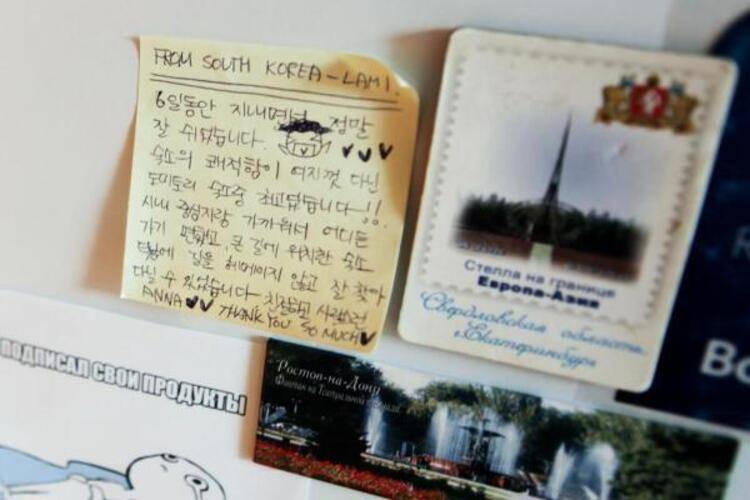 FROM SOUTH KOREA - LAMI.
6일동안 지내면서 정말
잘 쉬었습니다.
숙소의 쾌적함이 여지껏 다닌
도미토리 숙소중 최고였습니다 !!
시내 중심지랑 가까워서 어디든
가기 편했고, 큰 길에 위치한 숙소
덕분에 길을 헤메이지 않고 잘 찾아
다닐 수 있었습니다 친절하고 사랑스런
ANNA THANK YOU SO MUCH
Стелла на границе
Европа-Азия
Свердловская область,
г.Екатеринбург
Ростов-на-Дону
Фонтан на Театральной площади
ПОДПИСАЛ СВОИ ПРОДУКТЫ
Во